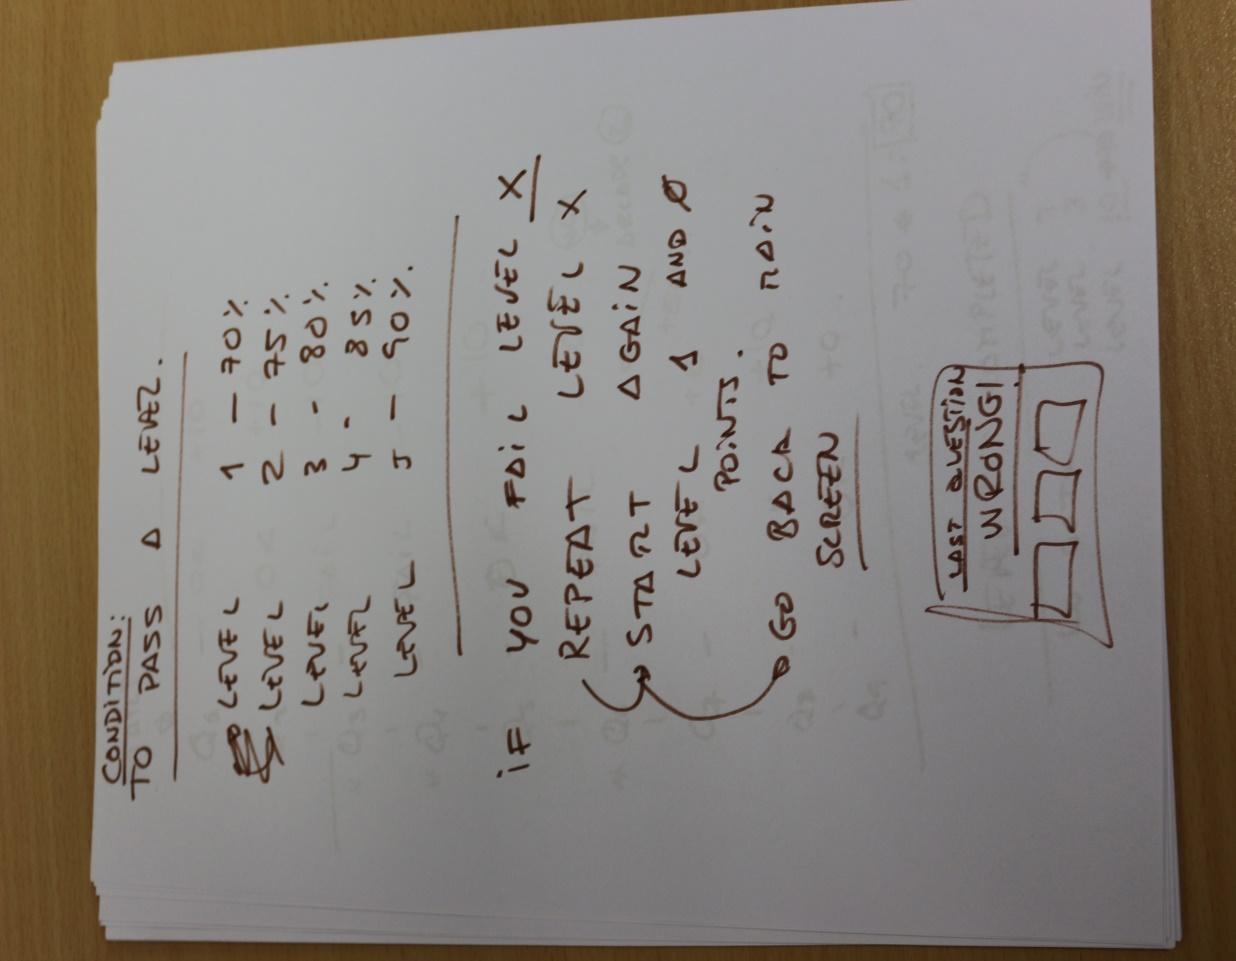 CONDITION:
TO PASS A LEVEL.
LEVEL 1 — 70%
LEVEL 2 — 75%
LEVEL 3 - 80%
LEVEL 4 - 85%
LEVEL 5 — 90%.
iF YOU FAiL LEVEL X
REPEAT LEVEL X
START AGAiN
LEVEL 1 AND Ø
POiNTS.
GO BACK TO MAiN
SCREEN
LAST QUESTION
WRONG!